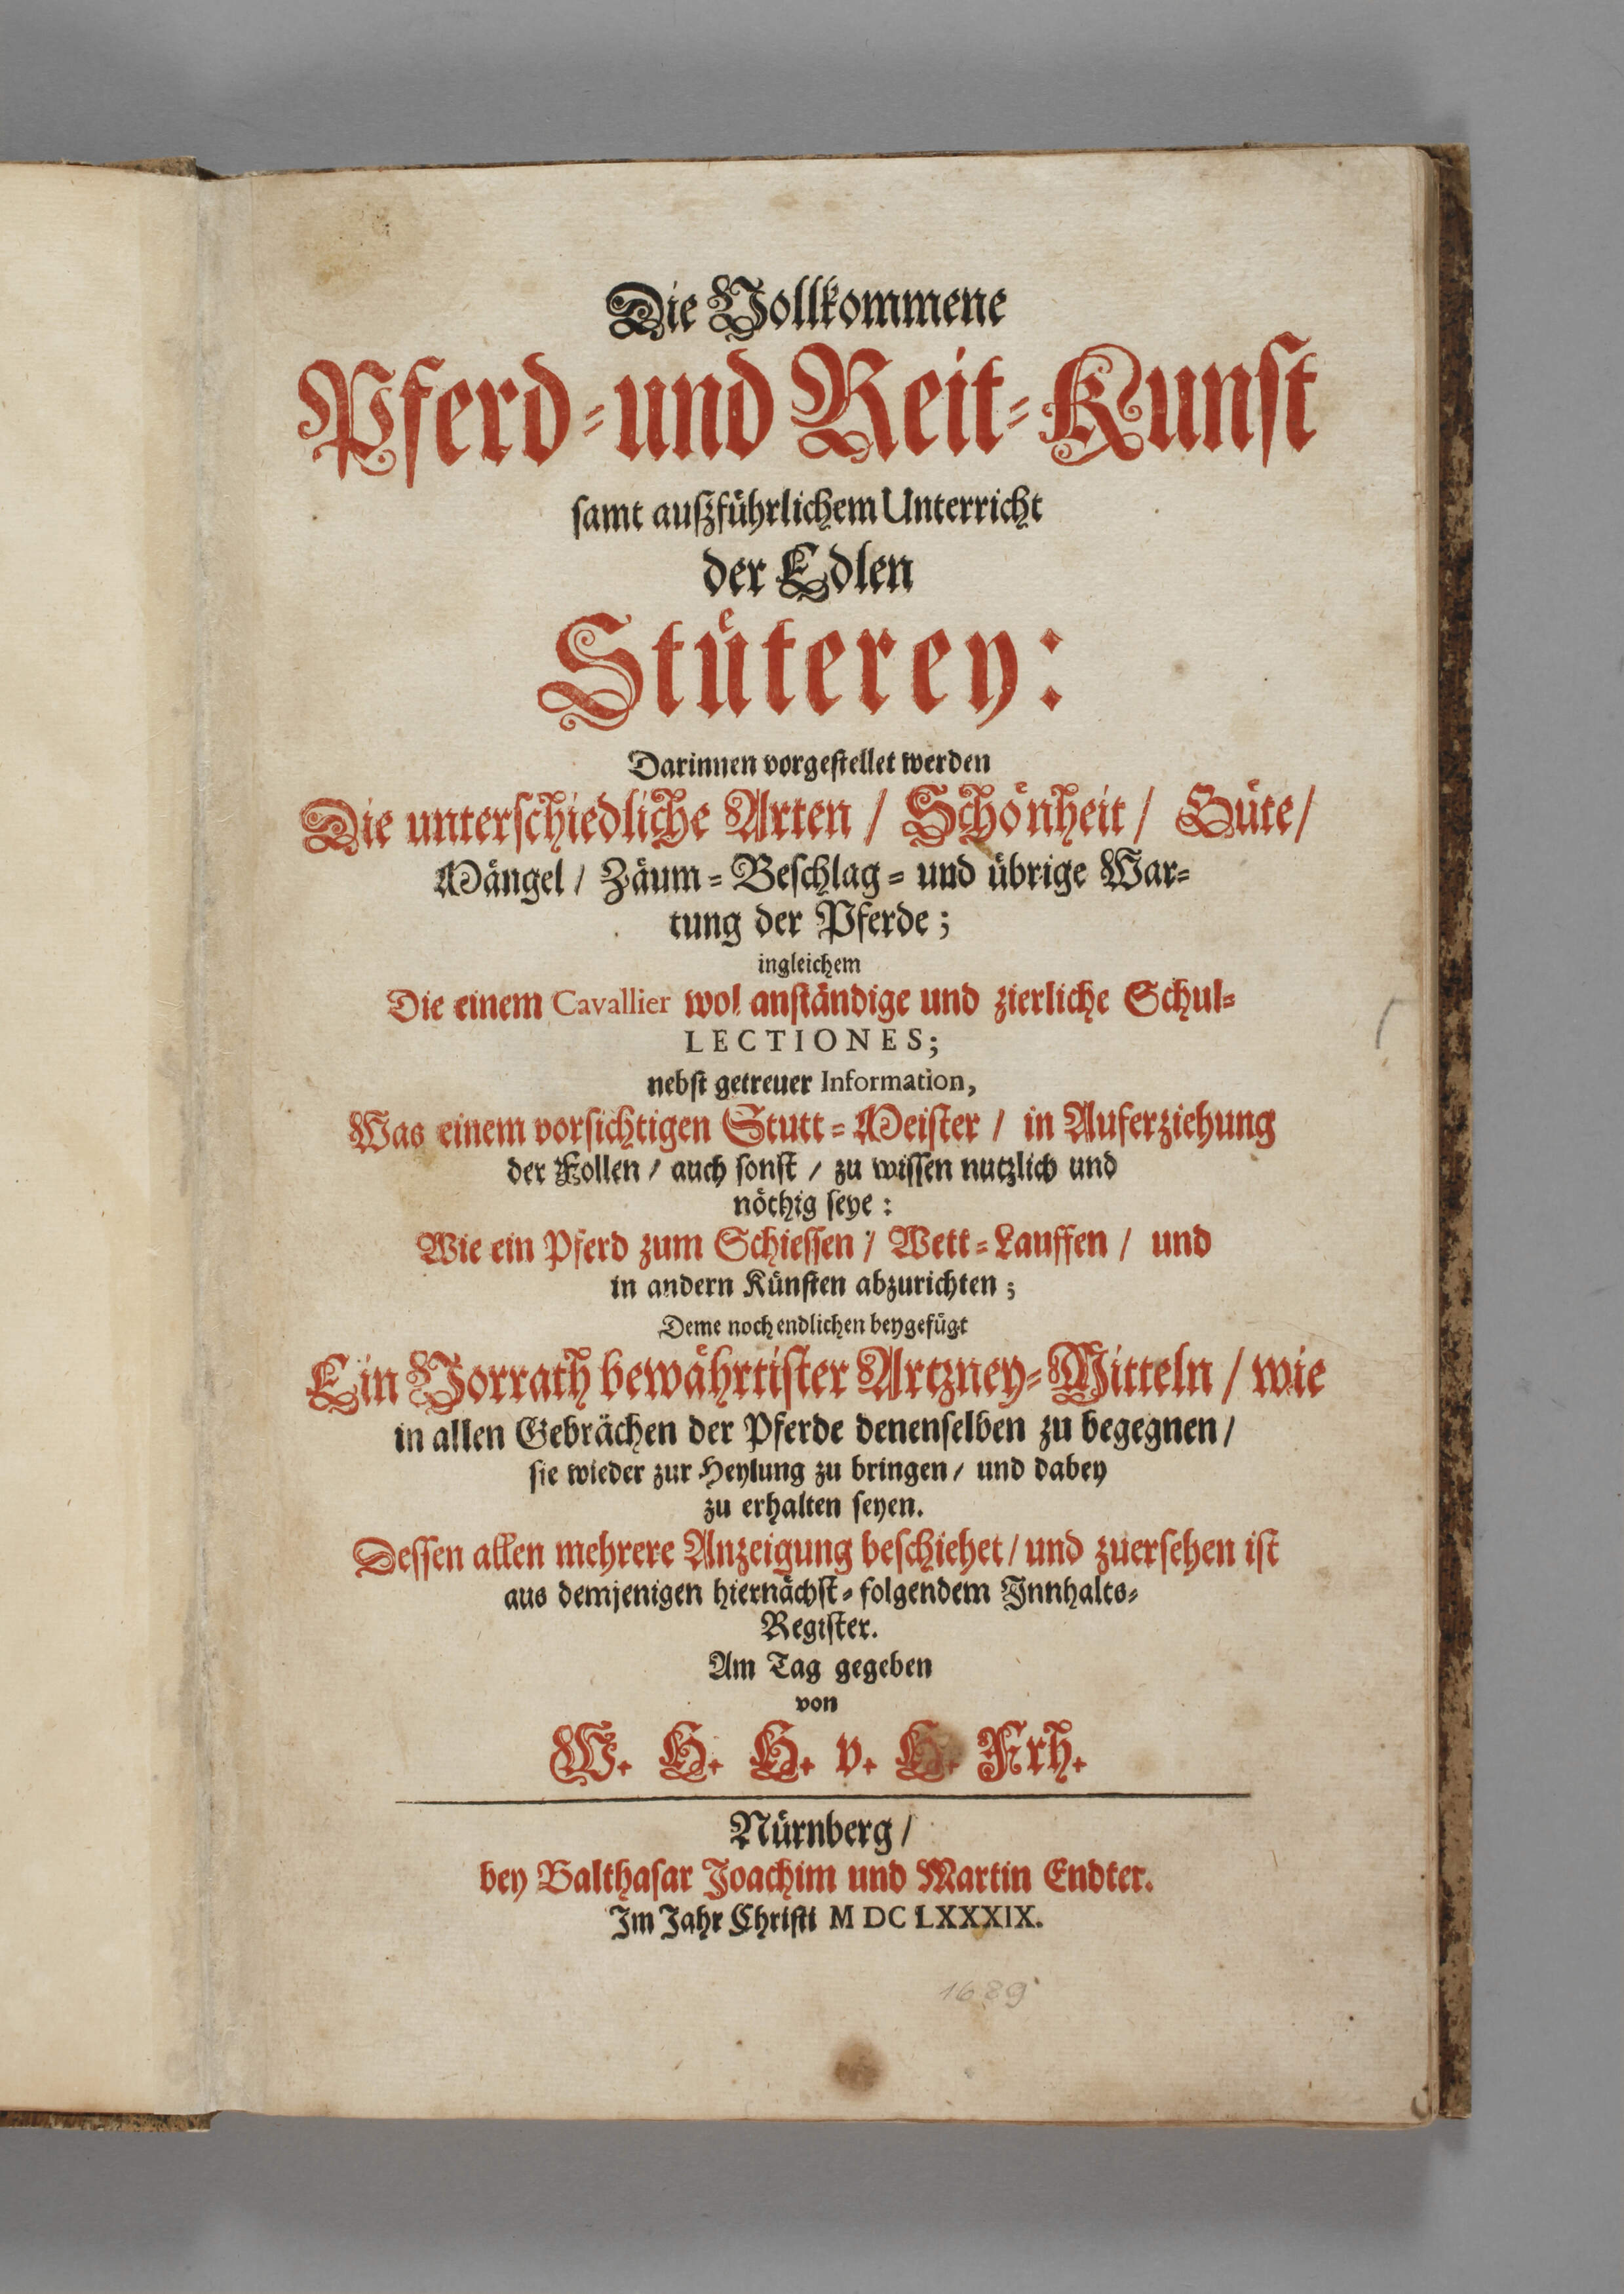 Die Vollkommene
Pferd-und Reit-Kunst
samt außführlichem Unterricht
der Edlen
Stüterey:
Darinnen vorgestellet werden
Die unterschiedliche Arten / Schönheit / Güte /
Mängel / Zäum-Beschlag- und übrige War-
tung der Pferde;
ingleichem
Die einem Cavallier wol anständige und zierliche Schul-
LECTIONES;
nebst getreuer Information,
Was einem vorsichtigen Stutt-Meister / in Auferziehung
der Follen / auch sonst / zu wissen nutzlich und
nöthig seye:
Wie ein Pferd zum Schiessen / Wett-Lauffen / und
in andern Künsten abzurichten;
Deme noch endlichen beygefügt
Ein Vorrath bewährtister Artzney-Mitteln / wie
in allen Gebrächen der Pferde denenselben zu begegnen /
sie wieder zur Heylung zu bringen / und dabey
zu erhalten seyen.
Dessen allen mehrere Anzeigung beschiehet / und zuersehen ist
aus demjenigen hiernächst-folgendem Innhalts-
Register.
Am Tag gegeben
von
W. H. H. v. H. Frh.
Nürnberg /
bey Balthasar Joachim und Martin Endter.
Im Jahr Christi M DC LXXXIX.
1689